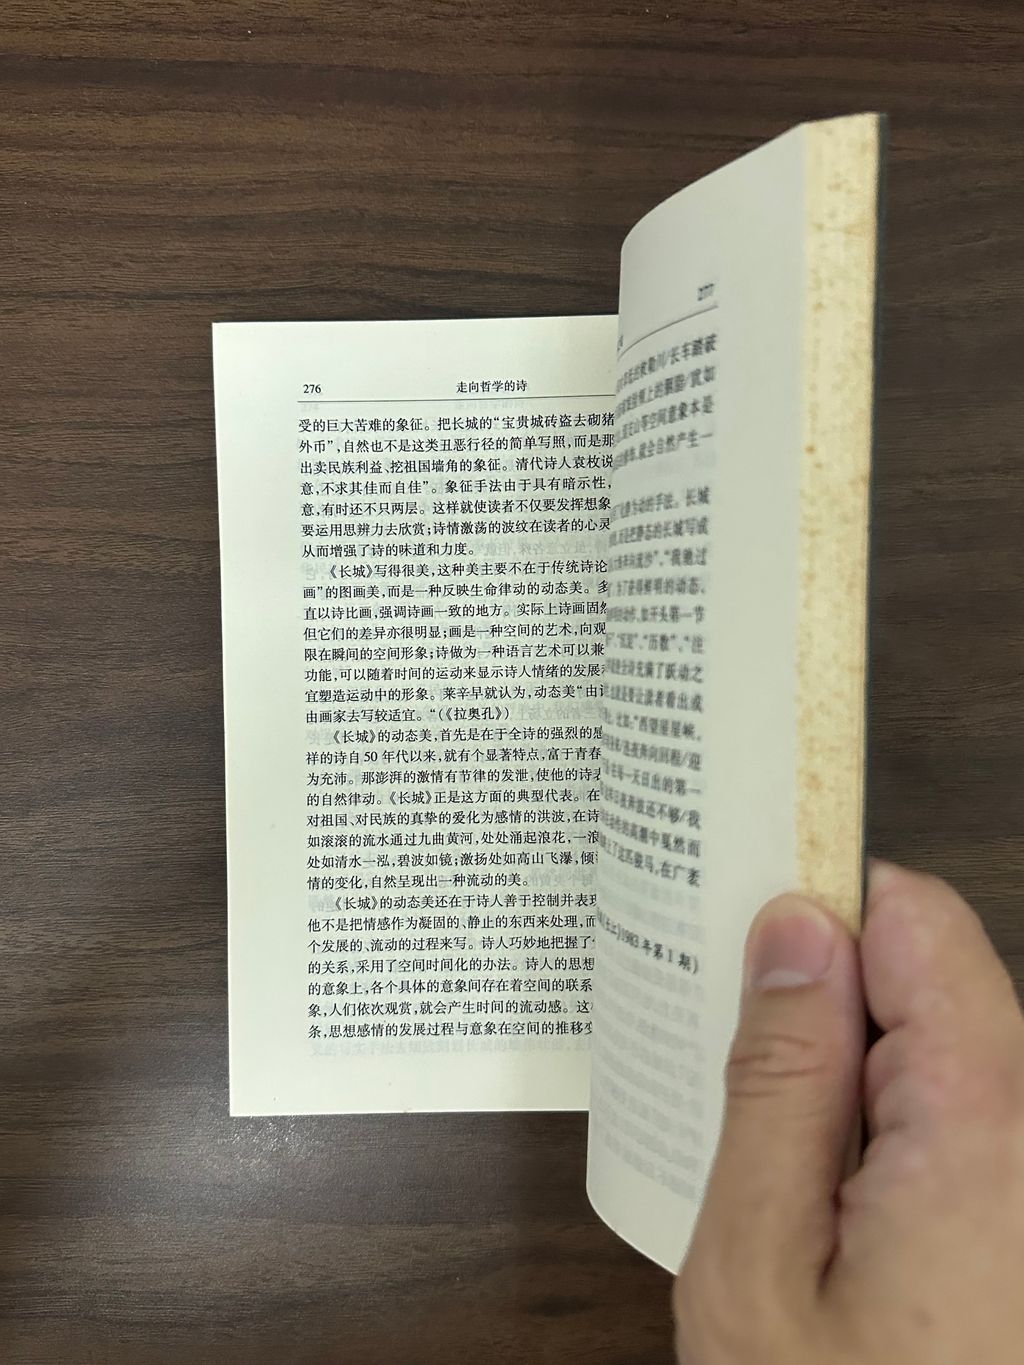 276
走向哲学的诗
受的巨大苦难的象征。把长城的“宝贵城砖盗去砌猪
外币”，自然也不是这类丑恶行径的简单写照，而是那
出卖民族利益、挖祖国墙角的象征。清代诗人袁枚说
意，不求其佳而自佳”。象征手法由于具有暗示性，
意，有时还不只两层。这样就使读者不仅要发挥想象
要运用思辨力去欣赏；诗情激荡的波纹在读者的心灵
从而增强了诗的味道和力度。
《长城》写得很美，这种美主要不在于传统诗论
画”的图画美，而是一种反映生命律动的动态美。多
直以诗比画，强调诗画一致的地方。实际上诗画固然
但它们的差异亦很明显；画是一种空间的艺术，向观
限在瞬间的空间形象；诗做为一种语言艺术可以兼
功能，可以随着时间的运动来显示诗人情绪的发展
宜塑造运动中的形象。莱辛早就认为，动态美“由
由画家去写较适宜。“（《拉奥孔》）
《长城》的动态美，首先是在于全诗的强烈的感
祥的诗自50年代以来，就有个显著特点，富于青春
为充沛。那澎湃的激情有节律的发泄，使他的诗
的自然律动。《长城》正是这方面的典型代表。在
对祖国、对民族的真挚的爱化为感情的洪波，在诗
如滚滚的流水通过九曲黄河，处处涌起浪花，一浪
处如清水一泓，碧波如镜；激扬处如高山飞瀑，倾
情的变化，自然呈现出一种流动的美。
《长城》的动态美还在于诗人善于控制并表现
他不是把情感作为凝固的、静止的东西来处理，而
个发展的、流动的过程来写。诗人巧妙地把握了
的关系，采用了空间时间化的办法。诗人的思想
的意象上，各个具体的意象间存在着空间的联系
象，人们依次观赏，就会产生时间的流动感。这
条，思想感情的发展过程与意象在空间的推移
277
敕勒川/长车踏破
上的胭脂/贯如
山等空间意象本是
就会自然产生一
为动的手法。长城
而是把静态的长城写成
奔向流沙”，“我驰过
为了获得鲜明的动态，
如开头第一节
“历数”、“注
全诗充满了跃动之
就是要让读者看出或
比如：“西望崖星峡，
连夜奔向回程/迎
在每一天日出的第一
日夜奔放还不够/我
的高潮中戛然而
上了这匹骏马，在广袤
1983年第1期）